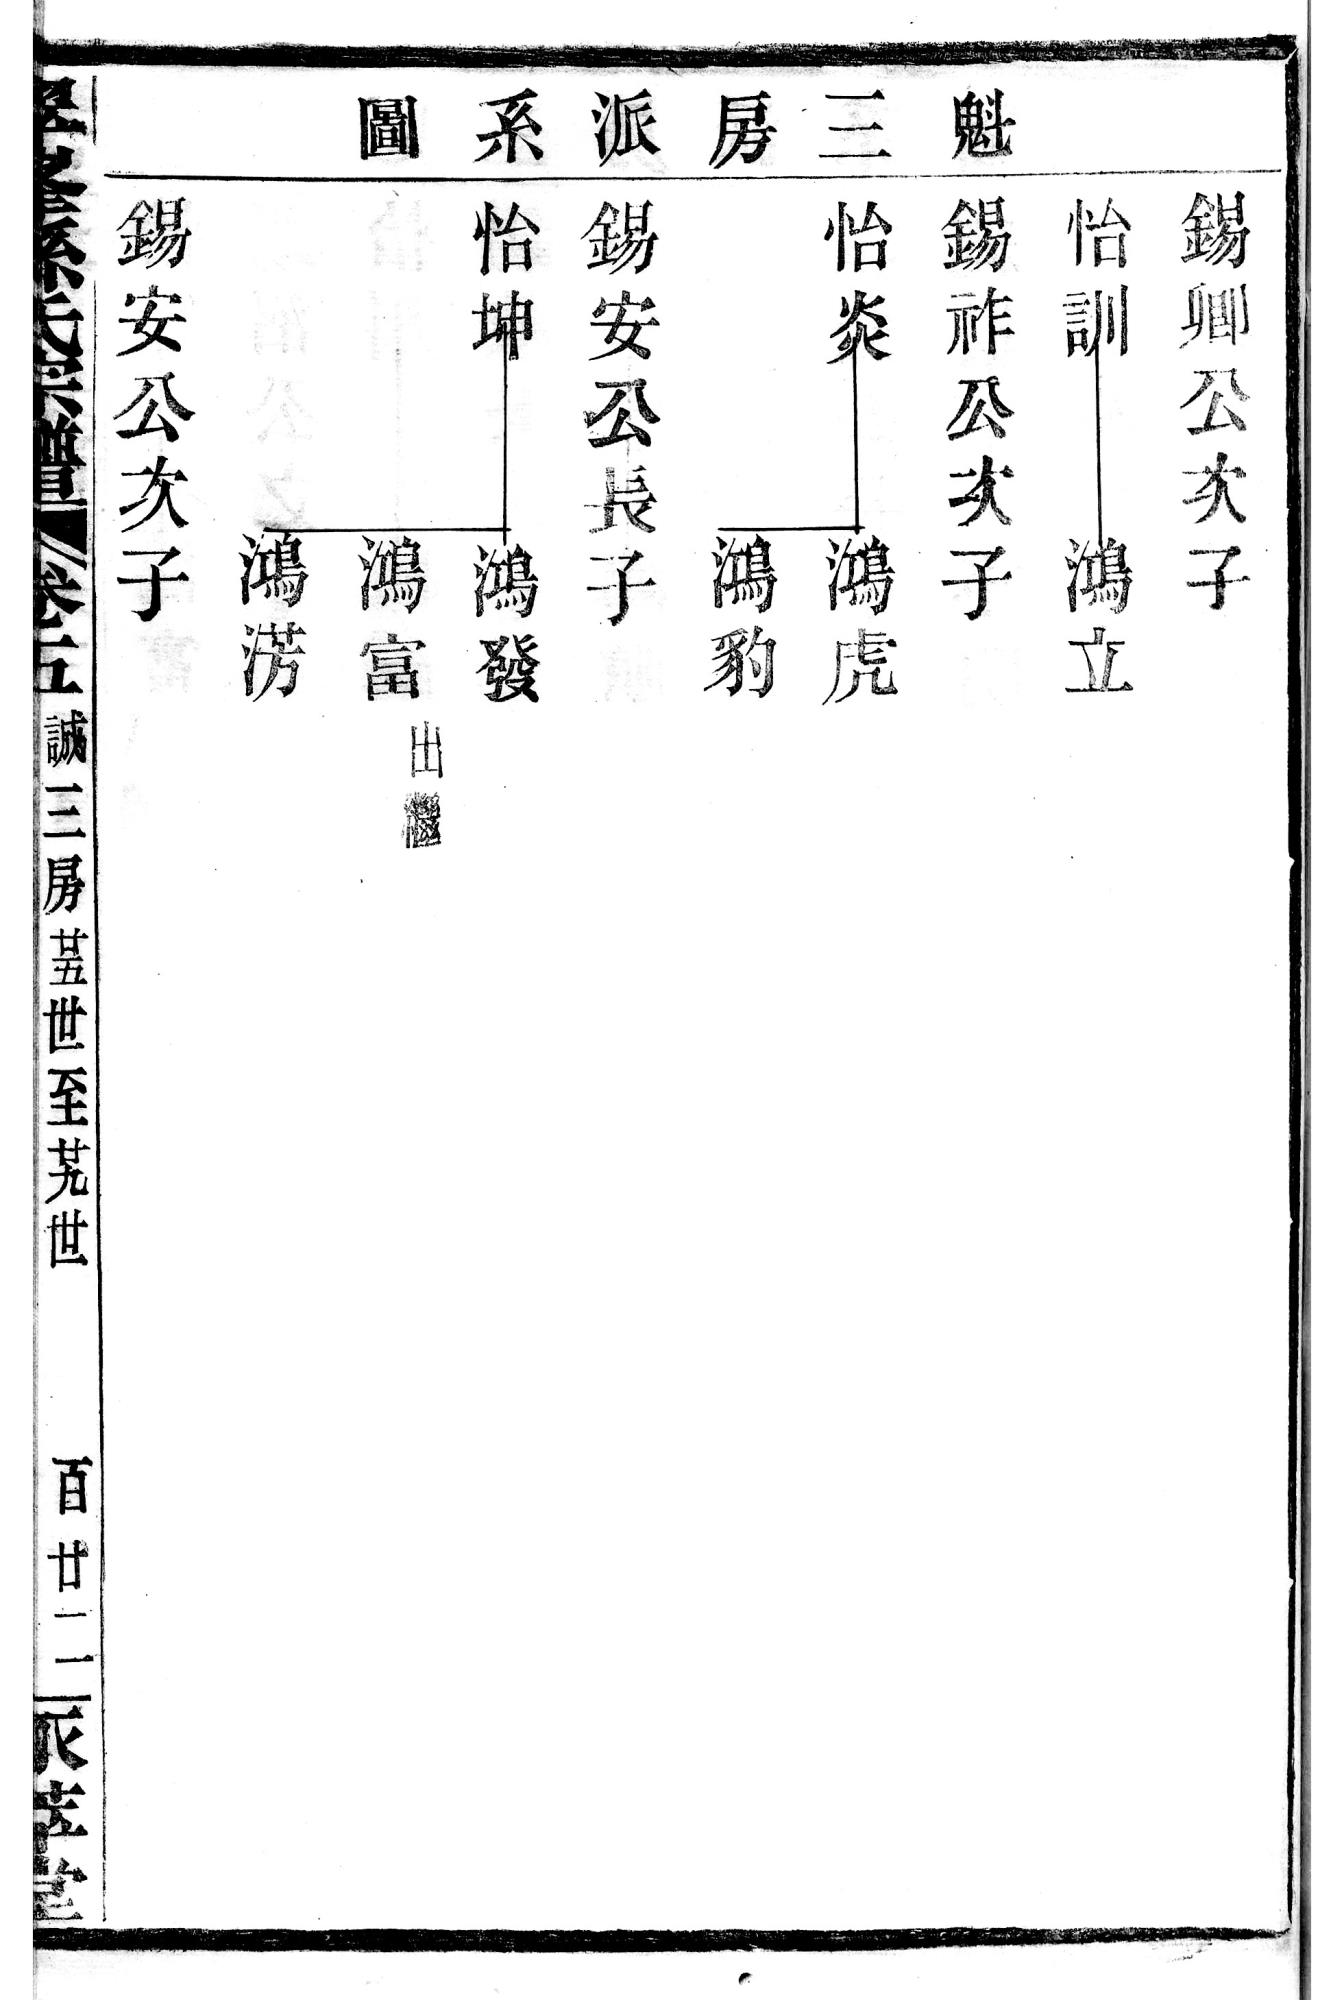 魁三房派系圖
錫卿公次子
怡訓
鴻立
錫祚公次子
怡炎
鴻虎
鴻豹
錫安公長子
怡坤
鴻發
鴻富
出繼
鴻淓
錫安公次子
氏宗譜
卷五
誠三房廿五世至廿九世
百廿二
堂